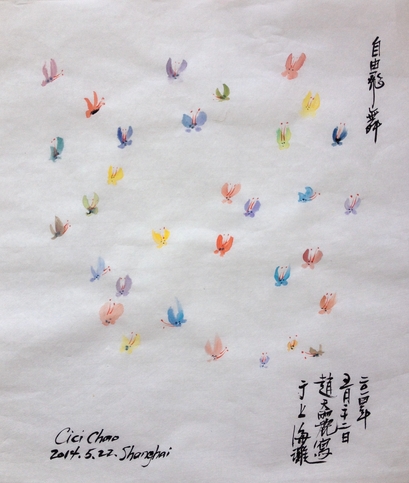 自由飛舞
二〇一四年
五月二十二日
趙麗寫
于上海灘
Cici Chao
2014.5.22. Shanghai